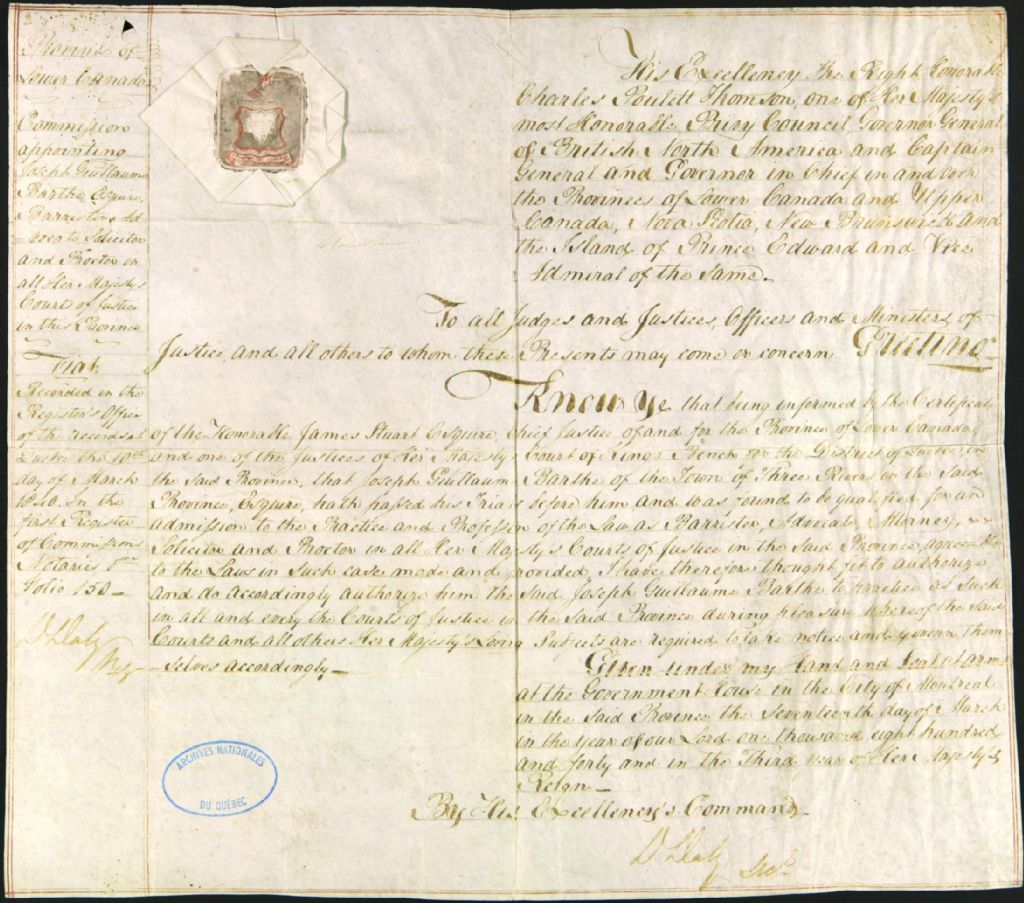 Province of
Lower Canada
Commission
appointing
Joseph Guillaume
Barthe Esquire,
Barrister Ad
=vocate Solicitor
and Proctor in
all Her Majesty's
Courts of Justice
in this Province
Fiat.
Recorded in the
Register's Office
of the records at
Quebec the
day of March
1840. In the
first Register
of Commissions
Notaries
Folio 150—
D Daly
Reg
His Excellency The Right Honorable
Charles Poulett Thomson, one of Her Majesty's
most Honorable Privy Council, Governor General
of British North America and Captain
General and Governor in Chief in and over
the Provinces of Lower Canada and Upper
Canada, Nova Scotia, New Brunswick and
the Island of Prince Edward and Vice
Admiral of the Same.—
To all Judges and Justices, Officers and Ministers of
Justice, and all others to whom these Presents may come or concern Greeting
Know Ye that being informed by the Certificate
of the Honorable James Stuart Esquire, Chief Justice of and for the Province of Lower Canada,
and one of the Justices of Her Majesty's Court of Kings Bench for the District of Quebec, in
the said Province, that Joseph Guillaume Barthe of the Town of Three Rivers in the Said
Province, Esquire, hath passed his Trials before him and was found to be qualified for an
admission to the Practice and Profession of the Law as Barrister, Advocate, Attorney,
Solicitor and Proctor in all Her Majesty's Courts of Justice in the Said Province, agreeable
to the Law in such case made and provided, I have therefore thought fit to authorize
and do accordingly authorize him the said Joseph Guillaume Barthe to Practice as Such
in all and every the Courts of Justice in the said Province during pleasure whereof the Said
Courts and all others Her Majesty's Loving Subjects are required to take notice and govern them
-selves accordingly—
Given under my Hand and Seal at arms
at the Government House in the City of Montreal
in the Said Province the Seventeenth day of March
in the Year of our Lord one thousand eight hundred
and forty and in the Third Year of Her Majesty's
Reign—
By His Excellency's Command—
D Daly Secy
ARCHIVES NATIONALES
DU QUÉBEC